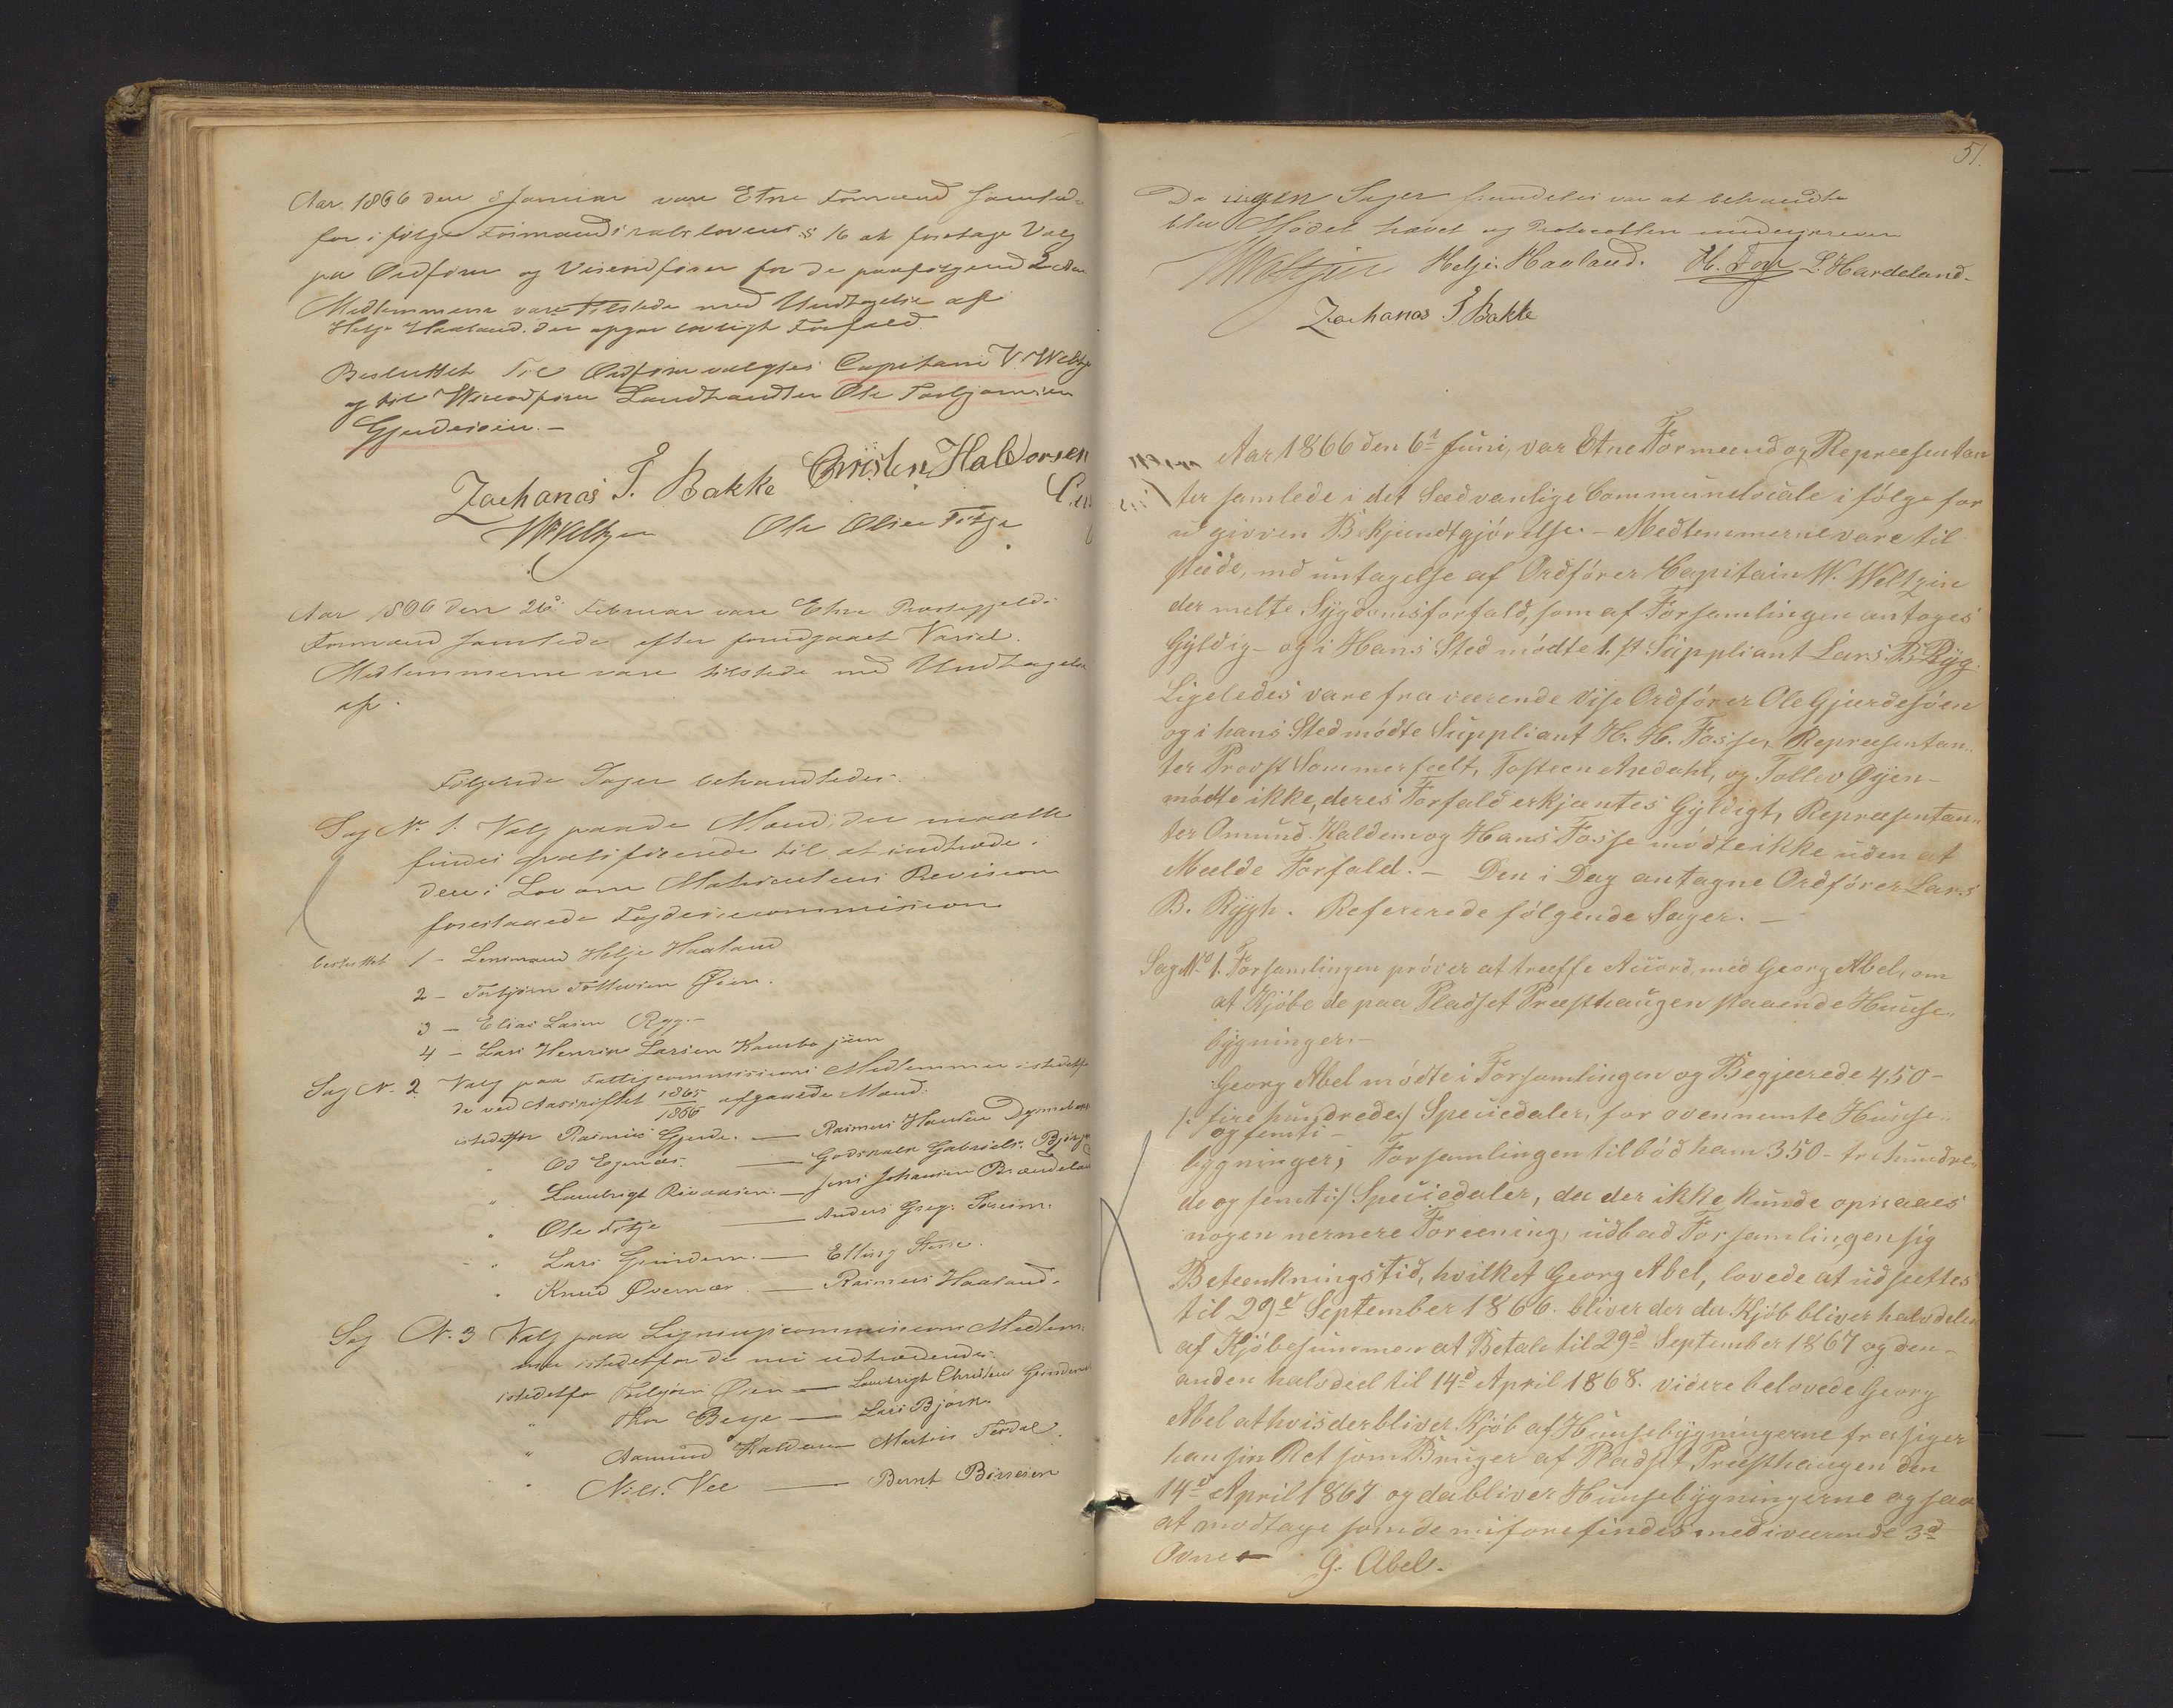 Aar 1866 den 8 Januar vare Etne Formænd samlede
for i følge Formandskabslovens § 16 at foretage Valg
paa Ordfører og Viseordfører for de paafølgende 2 Aar
Medlemmerne vare tilstede med Undtagelse af
Helje Haaland, der opgav lovligt Forfald.
Besluttet Til Ordfører valgtes Capitain V. Weltzin
og til Viseordfører Landhandler Ole Torbjørnsen
Gjerdesøen. –
Zacharias T. Bakke Christen Haldorsen
WWeltzin Ole Olsen Fitje
Aar 1866 den 26 Februar vare Etne Præstegjelds
Formænd samlede efter forudgaaet Varsel.
Medlemmerne vare tilstede med Undtagelse
af.
Følgende Sager behandledes:
Sag No. 1. Valg paa de Mænd, der maatte
findes qvalificerede til at indtræde i
den i Lov om Matrikulens Revision
foreslaaede Fogdericommission
besluttet 1 – Lensmand Helje Haaland
2 – Torbjørn Tollevsen Øien.
3 – Elias Larsen Rygg. –
4 – Lars Henrik Larsen Kambo jun
Sag N. 2 Valg paa Fattigcommissions Medlemmer istedetfor
de ved Aarsskiftet 1865/1866 afgaaede Mænd.
istedetfor Rasmus Gjerde. — Rasmus Hansen
" Od Egenæs. — Godskalk Gabriels. Bjørge
" Lambrigt — Jens Johansen
" Ole Fitje — Anders Greg. Sørheim.
" Lars Grindem. — Elling Stene.
" Knud Øvernæs — Rasmus Haaland.
Sag N. 3 Valg paa Ligningscommissions Medlem-
mer istedetfor de nu udtrædende:
istedetfor Torbjørn Øien — Lambrigt Christens Grindem
" Thor Berge — Lars Bjørk.
" Aamund Kaldem — Martin Tesdal.
" Nils Vee — Bernt
51.
Da ingen Sager fremdeles var at behandle
blev Mødet hævet og Protocollen underskreven
WWeltzin Helje Haaland. H. Foss L. Hardeland.
Zacharias T Bakke
Aar 1866 den 6t Juni, var Etne Formænd og Repræsentan
ter samlede i det Sædvanlige Communelocale i følge for
u givven Bekjendtgjørelse. – Medlemmerne vare til
stæde, md untagelse af Ordfører Capitain W. Weltzin
der melte Sygdomsforfald, som af Forsamlingen antoges
Gyldig – og i Hans Sted mødte 1. st Suppliant Lars B. Ryg.
Ligeledes vare fra værende Vise Ordfører Ole Gjærdesøen
og i hans Sted mødte Suppliant H. H. Fosse, Repræsentan-
ter Provst Sommerfeelt, Tosteen Axdahl, og Tollev Øyen –
mødte ikke, deres Forfald erkjæntes Gyldigt, Repræsentan-
ter Omund Kaldem og Hans Fosse mødte ikke uden at
Mælde Forfald. – Den i Dag antagne Ordfører Lars
B. Rygh. Refererede følgende Sager. –
Sag No 1. Forsamlingen prøver at træffe Accord, med Georg Abel, om
at Kjøbe de paa Pladset Præsthaugen staaende Huuse-
bygninger. –
Georg Abel mødte i Forsamlingen og Begjærede 450 –
/: fire hundrede/ Speciedaler, for ovennemte Huuse-
og femti –
bygninger; Forsamlingen tilbød ham 350 – tre hundre-
de og femti:/ Speciedaler, da der ikke kunde opnaaes
nogen nermere Foreening, udbad Forsamlingen sig
Betænkningstid, hvilket Georg Abel, lovede at udsættes
til 29d September 1866. bliver der da Kjøb bliver halvdelen
af Kjøbesummen at Betale til 29d September 1867 og den –
anden halvdeel til 14d April 1868. videre belovede Georg
Abel at hvis der bliver Kjøb af Huusebygningerne fra siger
han sin Ret som Bruger af Pladset Præsthaugen den
14d April 1867 og da bliver Huusebygningerne ogsaa
at modtage som de nu forefindes med iværende 3d
Ovne – G. Abel.